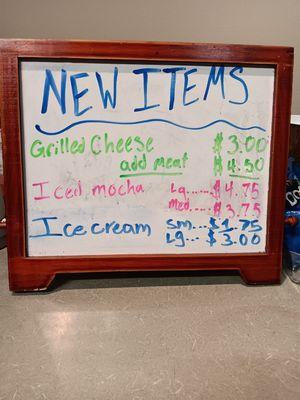 NEW ITEMS
Grilled Cheese $3.00
add meat $4.50
Iced mocha Lg...... $4.75
Med..... $3.75
Ice cream Sm... $1.75
Lg... $3.00